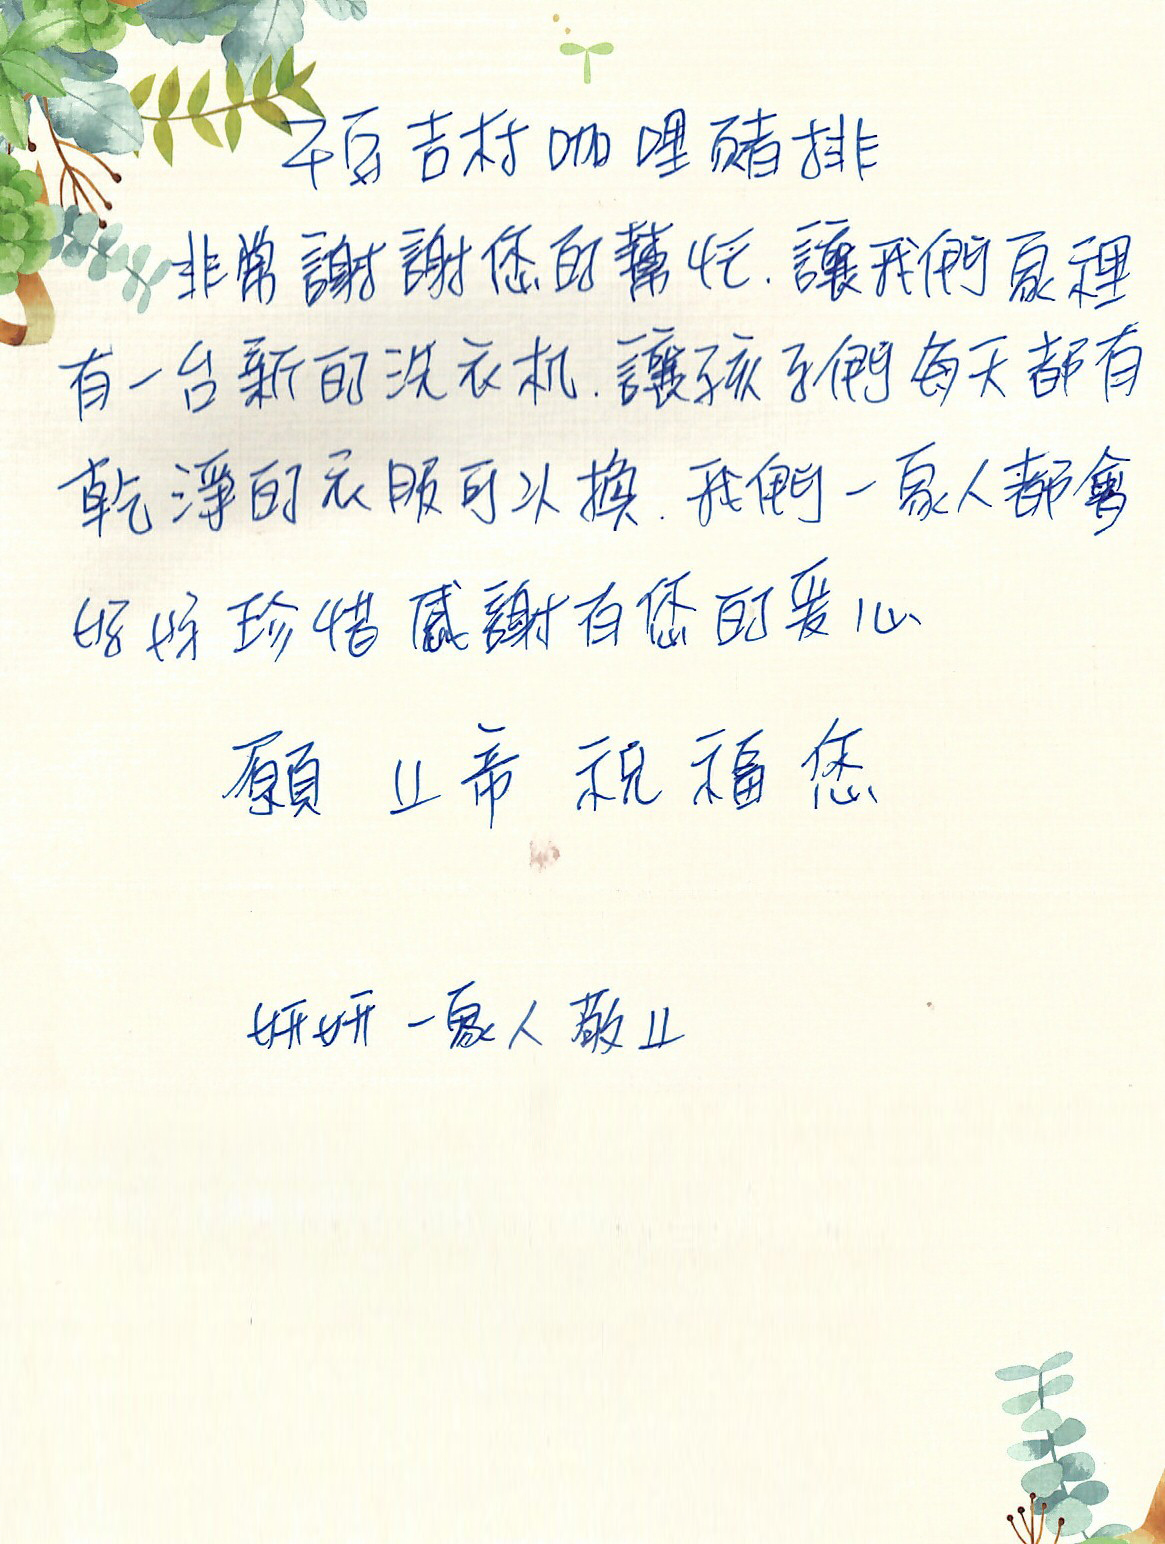 福吉村咖哩豬排
非常謝謝您的幫忙.讓我們家裡
有一台新的洗衣机.讓孩子們每天都有
乾淨的衣服可以換.我們一家人都會
好好珍惜感謝有您的爱心
願上帝祝福您
妍妍一家人敬上